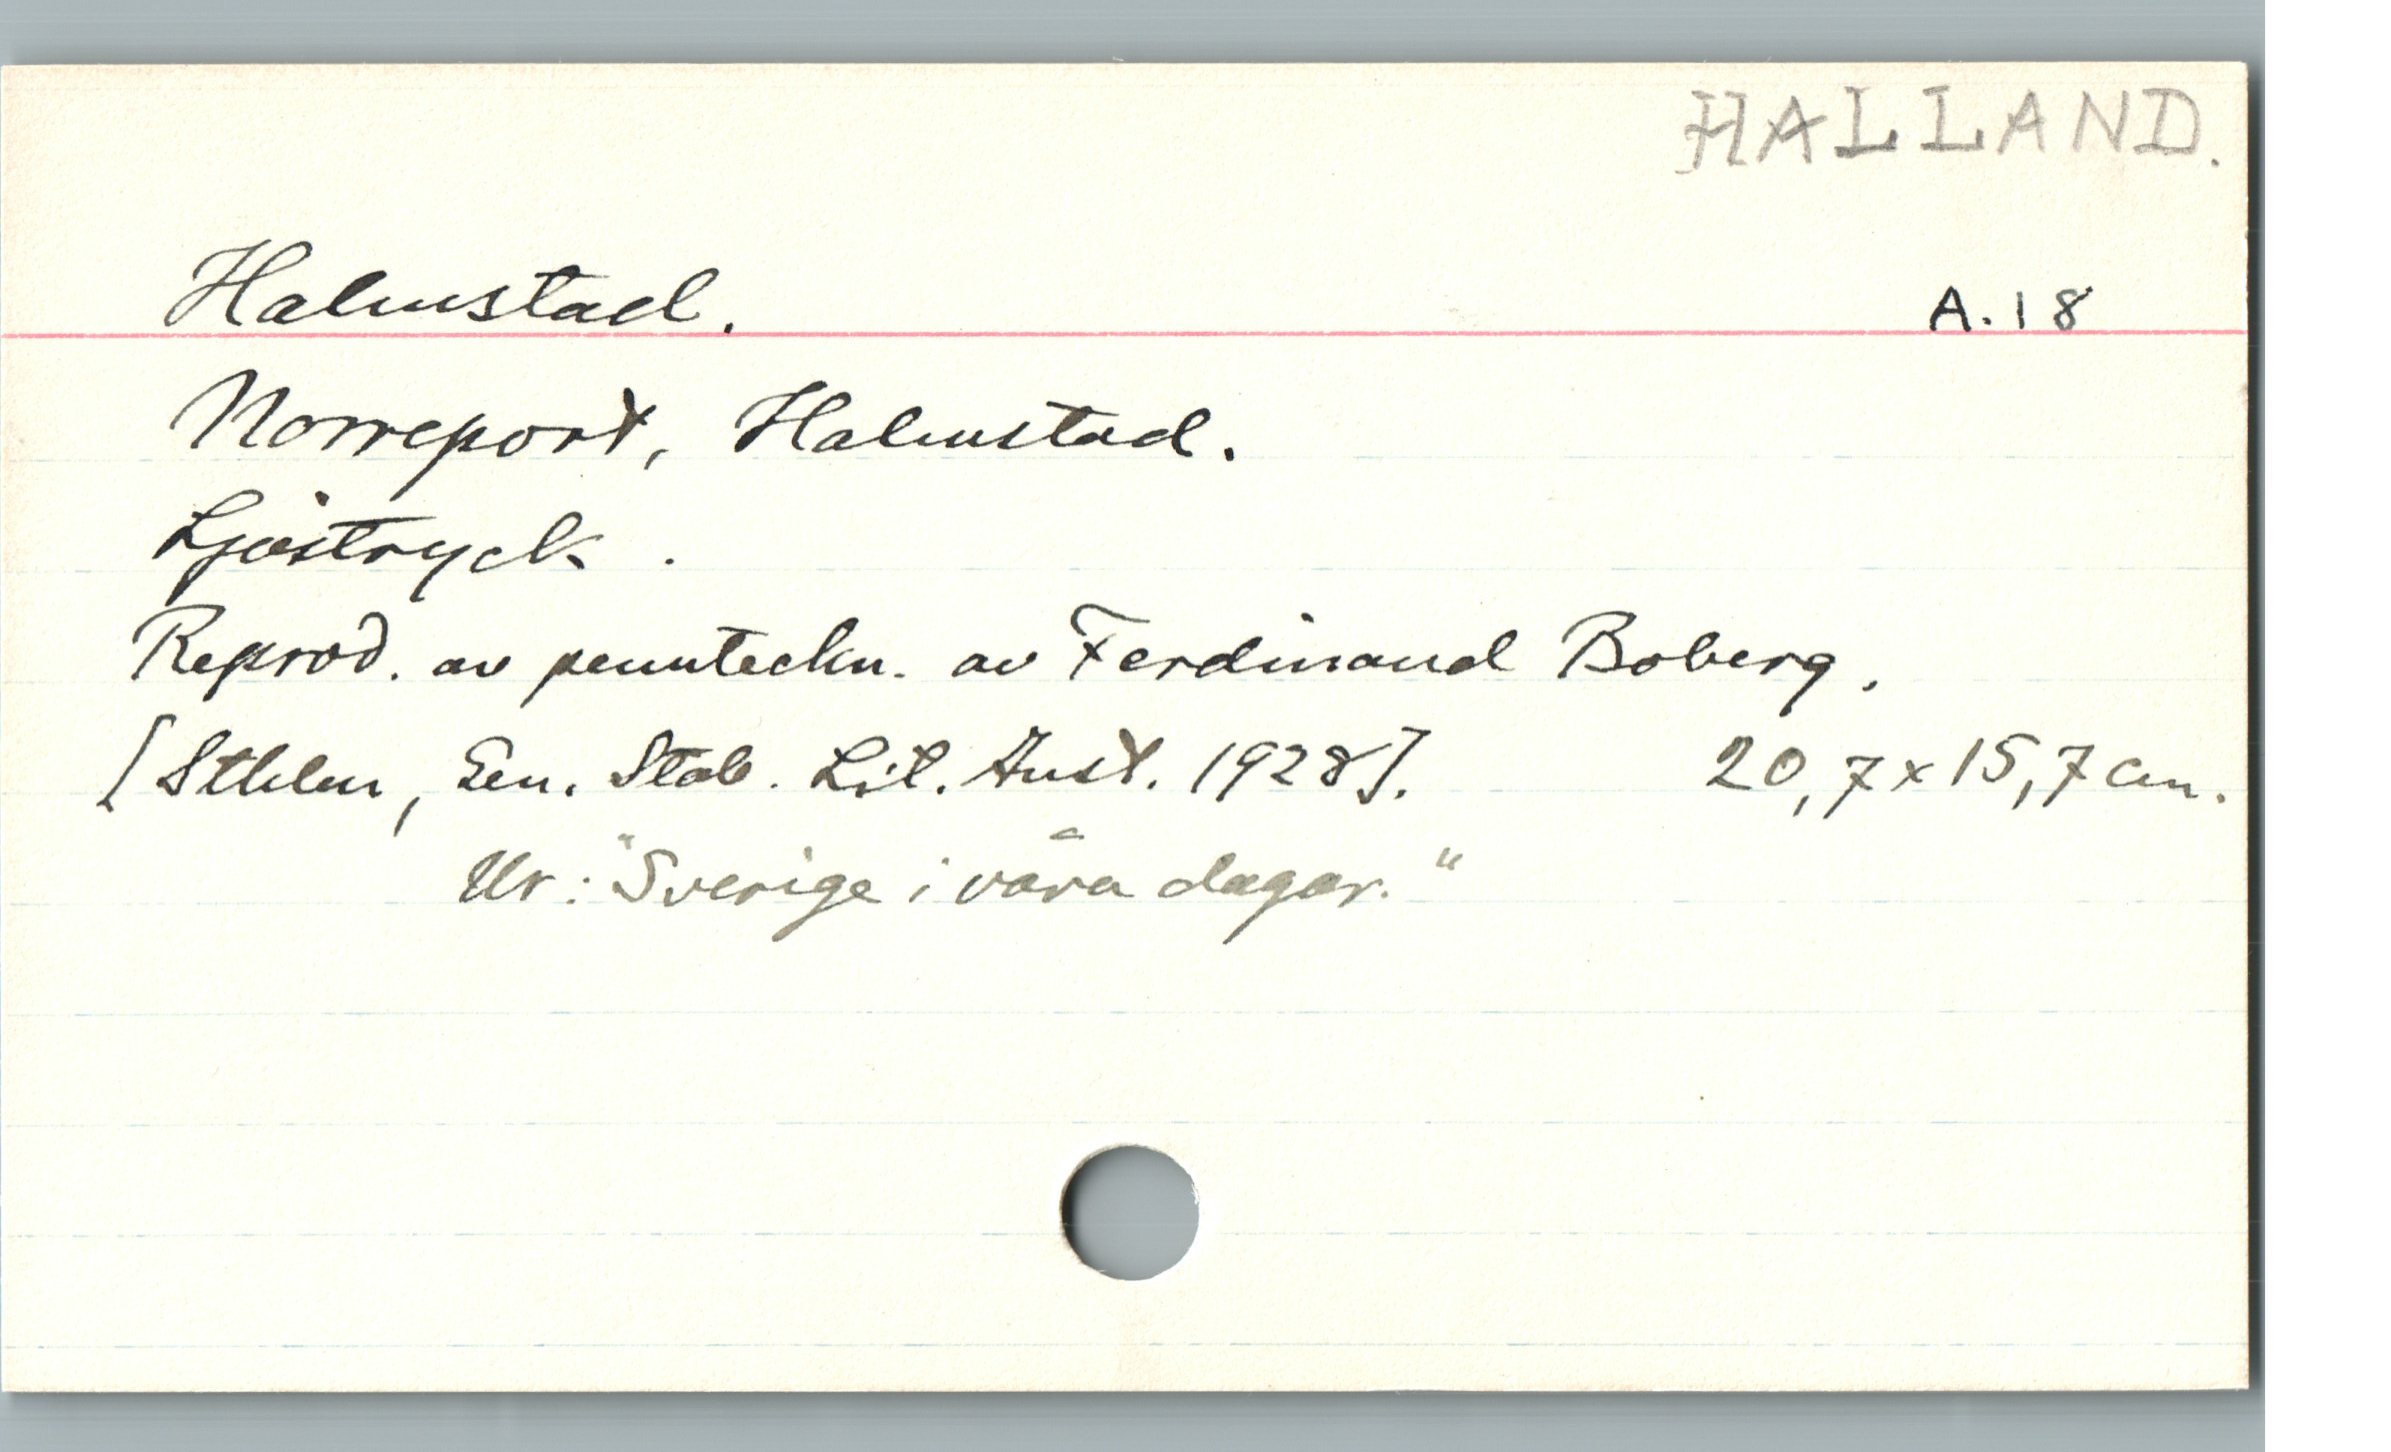 HALLAND.
Halmstad. A.18
Norreport, Halmstad.
Ljustryck.
Reprod. av pennteckn. av Ferdinand Boberg.
[Sthlm, Gen. Stab. Lit. Anst. 1928]. 20,7 x 15,7 cm.
Ur: "Sverige i våra dagar."